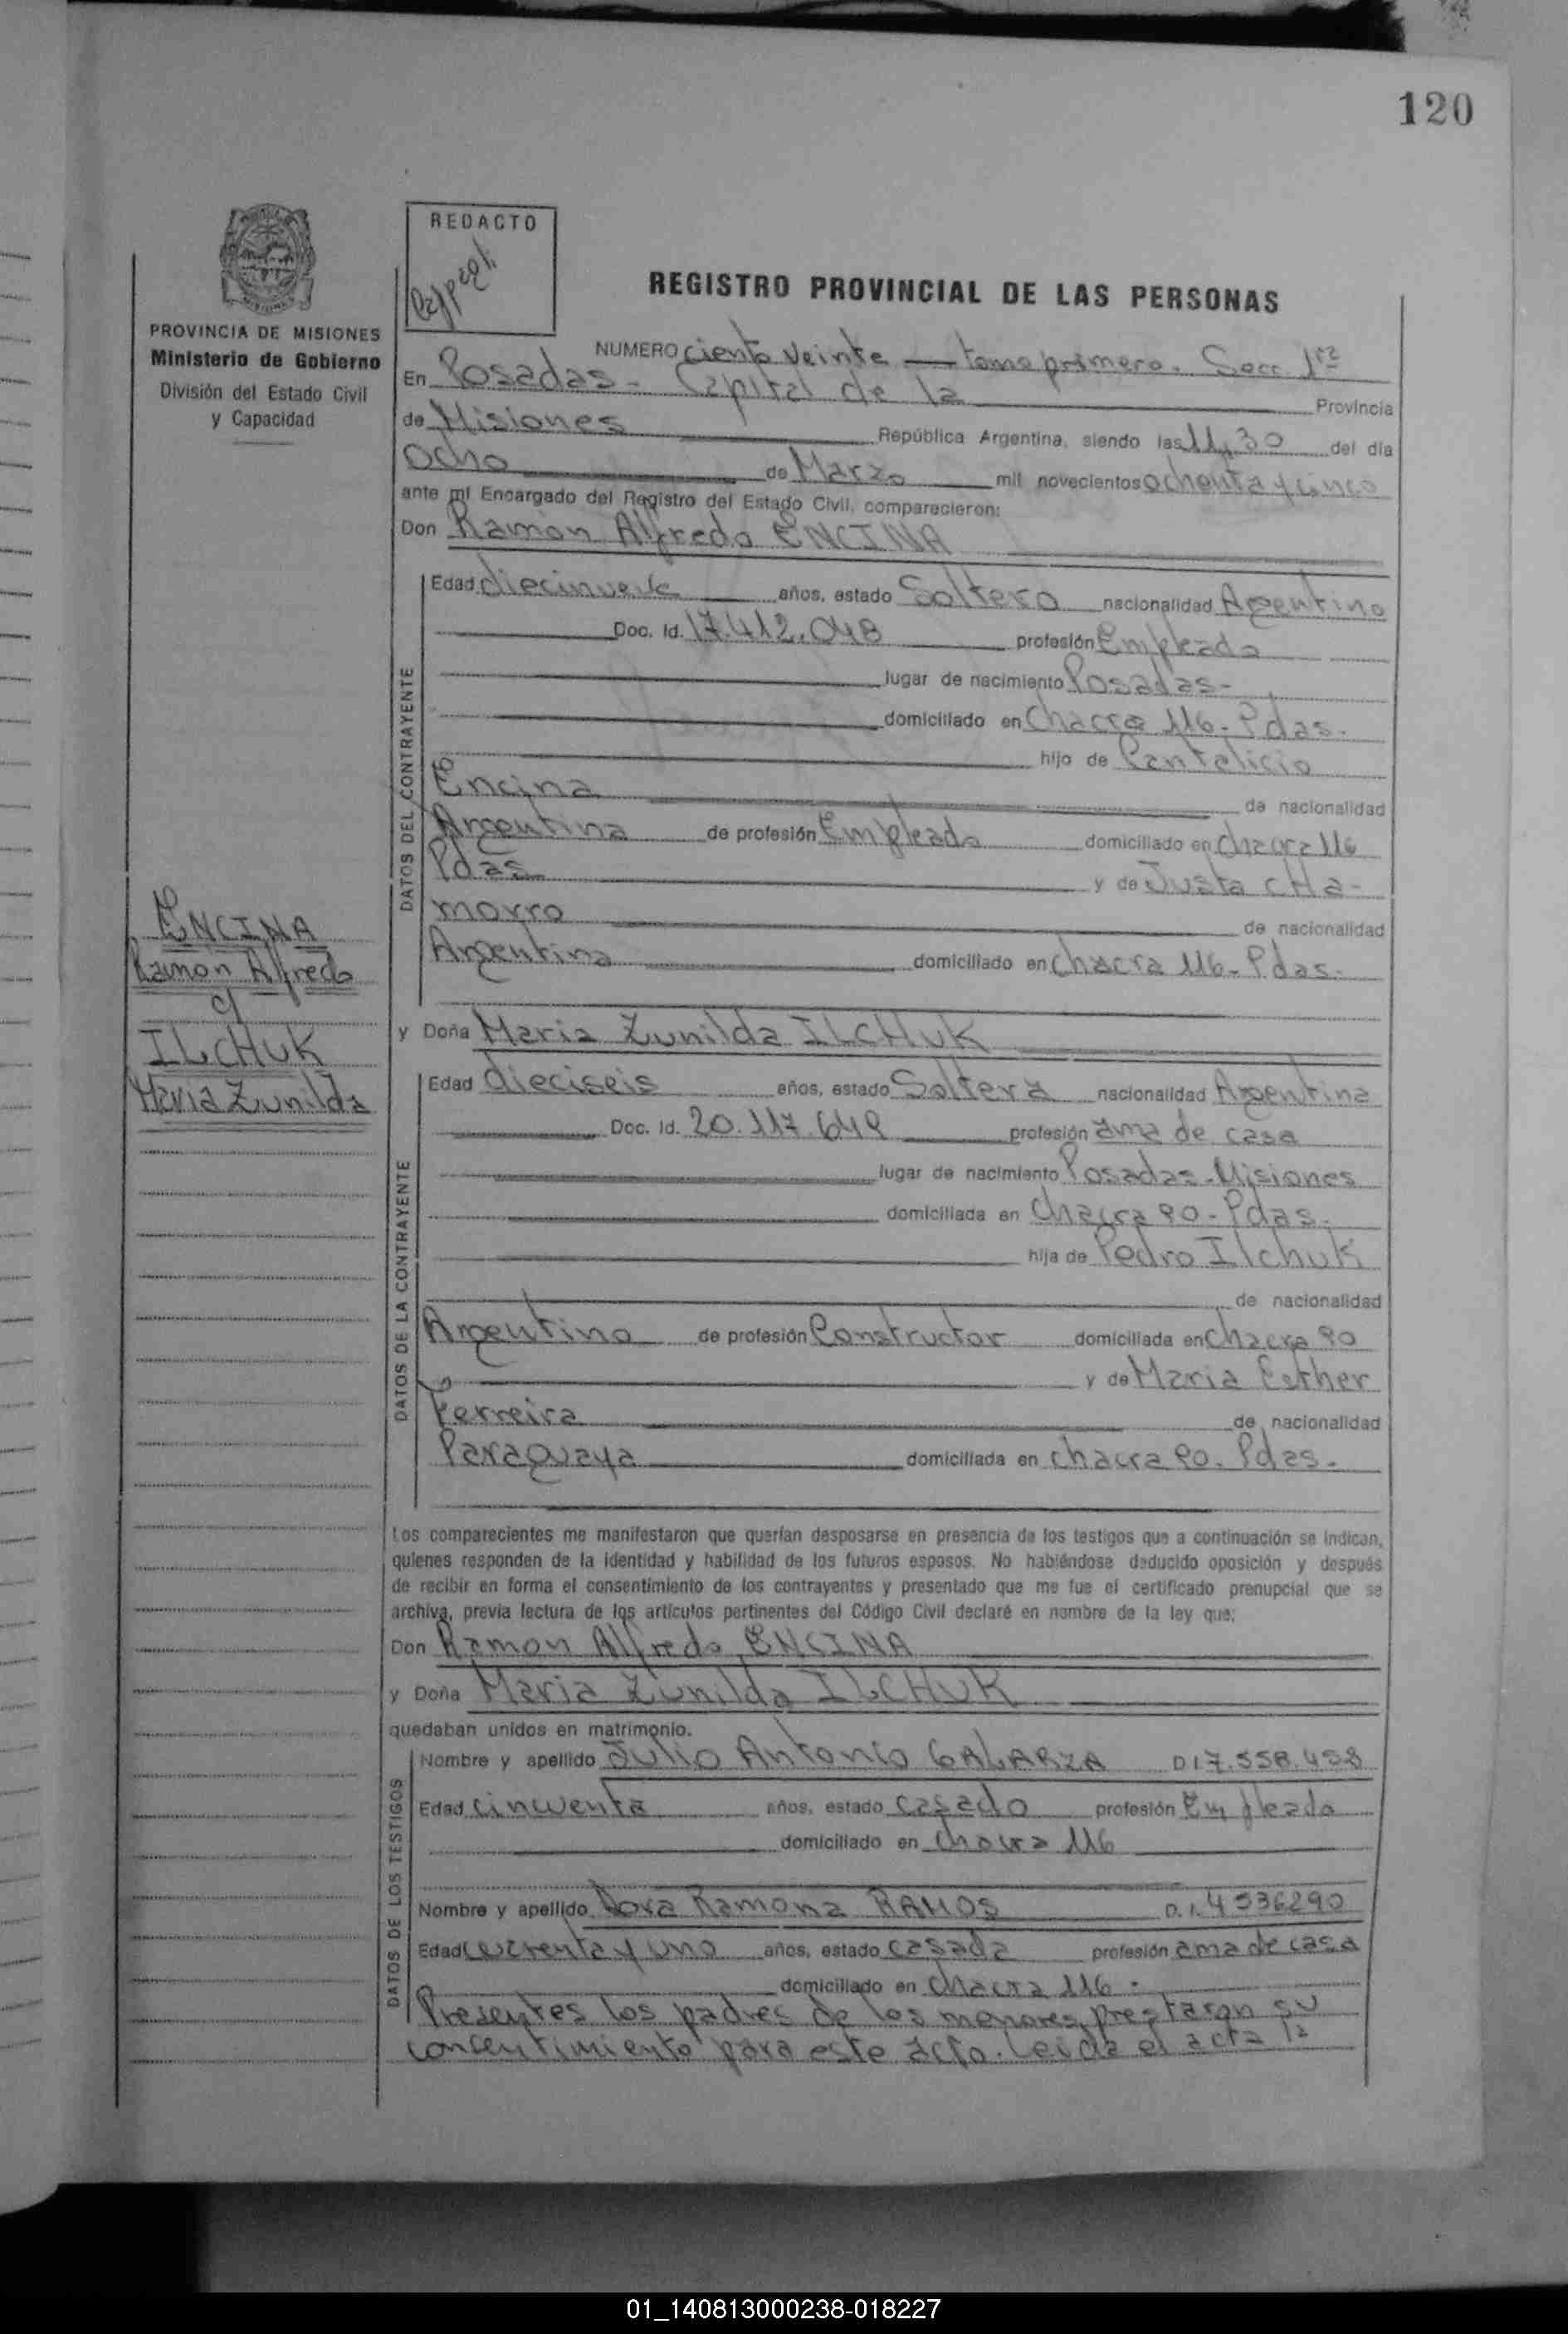 120
REDACTO
REGISTRO PROVINCIAL DE LAS PERSONAS
PROVINCIA DE MISIONES
Ministerio de Gobierno
División del Estado Civil
y Capacidad
NUMERO ciento veinte — tomo primero. Secc. 1ra
En Posadas - Capital de la Provincia
de Misiones República Argentina, siendo las 11,30 del día
Ocho de Marzo mil novecientos ochenta y cinco
ante mí Encargado del Registro del Estado Civil, comparecieron:
Don Ramon Alfredo ENCINA
DATOS DEL CONTRAYENTE
Edad diecinueve años, estado Soltero nacionalidad Argentino
Doc. Id. 17.412.048 profesión Empleado
lugar de nacimiento Posadas-
domiciliado en Chacra 116- Pdas.
hijo de Pantalicio
Encina de nacionalidad
Argentina de profesión Empleado domiciliado en chacra 116
Pdas y de Justa CHa-
morro de nacionalidad
Argentina domiciliado en chacra 116- Pdas.
ENCINA
Ramon Alfredo
c/
ILCHUK
Maria Zunilda
y Doña Maria Zunilda ILCHUK
DATOS DE LA CONTRAYENTE
Edad dieciseis años, estado Soltera nacionalidad Argentina
Doc. Id. 20.117.649 profesión ama de casa
lugar de nacimiento Posadas-Misiones
domiciliada en Chacra 90- Pdas.
hija de Pedro Ilchuk
de nacionalidad
Argentino de profesión Constructor domiciliada en Chacra 90
y de Maria Esther
Ferreira de nacionalidad
Paraguaya domiciliada en chacra 90. Pdas.
Los comparecientes me manifestaron que querían desposarse en presencia de los testigos que a continuación se indican,
quienes responden de la identidad y habilidad de los futuros esposos. No habiéndose deducido oposición y después
de recibir en forma el consentimiento de los contrayentes y presentado que me fue el certificado prenupcial que se
archiva, previa lectura de los artículos pertinentes del Código Civil declaré en nombre de la ley que:
Don Ramon Alfredo ENCINA
y Doña Maria Zunilda ILCHUK
quedaban unidos en matrimonio.
DATOS DE LOS TESTIGOS
Nombre y apellido Julio Antonio GALARZA DI 7.558.458
Edad cincuenta años, estado casado profesión Empleado
domiciliado en chacra 116
Nombre y apellido Dora Ramona RAMOS D.I. 4936290
Edad cuarenta y uno años, estado casada profesión ama de casa
domiciliado en chacra 116.
Presentes los padres de los menores, prestaron su
consentimiento para este acto. Leída el acta la
01_140813000238-018227